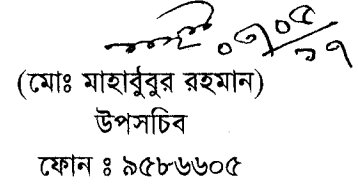 ০৭/০৫/১৭
(মোঃ মাহাবুবুর রহমান)
উপসচিব
ফোন ঃ ৯৫৮৬৬০৫